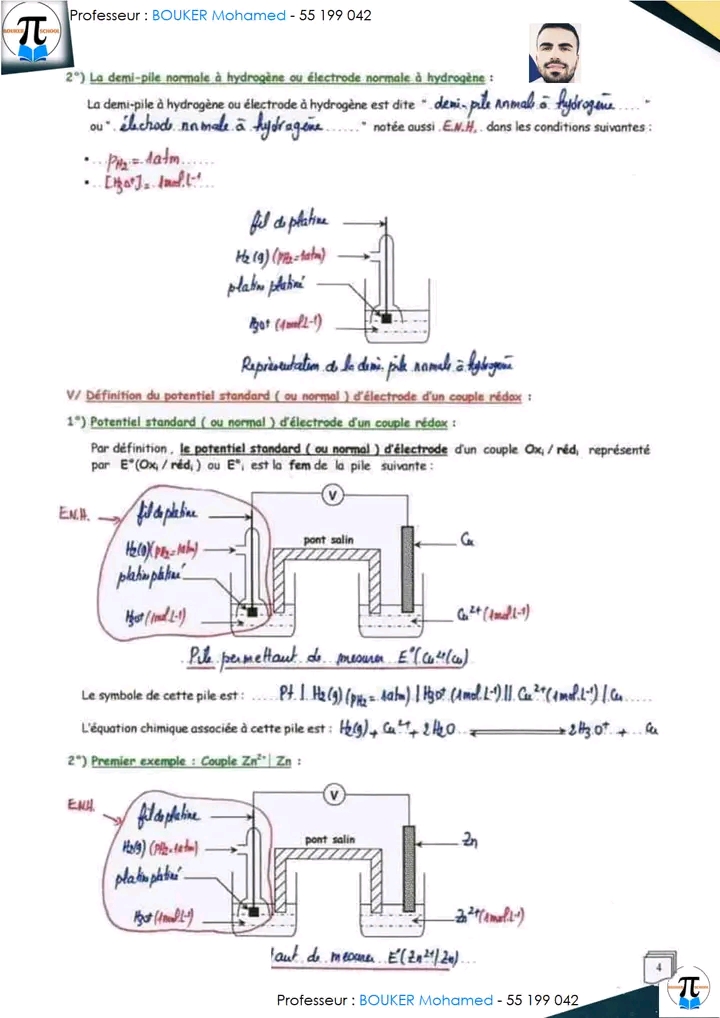 Professeur : BOUKER Mohamed - 55 199 042
BOUKER SCHOOL
2°) La demi-pile normale à hydrogène ou électrode normale à hydrogène :
La demi-pile à hydrogène ou électrode à hydrogène est dite " demi-pile normale à hydrogène "
ou " électrode normale à hydrogène " notée aussi E.N.H. dans les conditions suivantes :
• pH2 = 1atm
• [H3O+] = 1mol.L-1
fil de platine
H2(g) (pH2=1atm)
platine platiné
H3O+ (1mol.L-1)
Représentation de la demi-pile normale à hydrogène
V/ Définition du potentiel standard ( ou normal ) d'électrode d'un couple rédox :
1°) Potentiel standard ( ou normal ) d'électrode d'un couple rédox :
Par définition , le potentiel standard ( ou normal ) d'électrode d'un couple Oxi / rédi représenté
par E°(Oxi / rédi ) ou E°i est la fem de la pile suivante :
V
E.N.H.
fil de platine
pont salin
Cu
H2(g)(pH2=1atm)
platine platiné
H3O+ (1mol.L-1)
Cu2+ (1mol.L-1)
Pile permettant de mesurer E°(Cu2+/Cu)
Le symbole de cette pile est : Pt | H2(g) (pH2 = 1atm) | H3O+ (1mol.L-1) || Cu2+ (1mol.L-1) | Cu
L'équation chimique associée à cette pile est : H2(g) + Cu2+ + 2H2O ⇌ 2H3O+ + Cu
2°) Premier exemple : Couple Zn2+| Zn :
V
E.N.H.
fil de platine
pont salin
Zn
H2(g) (pH2=1atm)
platine platiné
H3O+ (1mol.L-1)
Zn2+ (1mol.L-1)
tant de mesurer E°(Zn2+/Zn)
4
Professeur : BOUKER Mohamed - 55 199 042